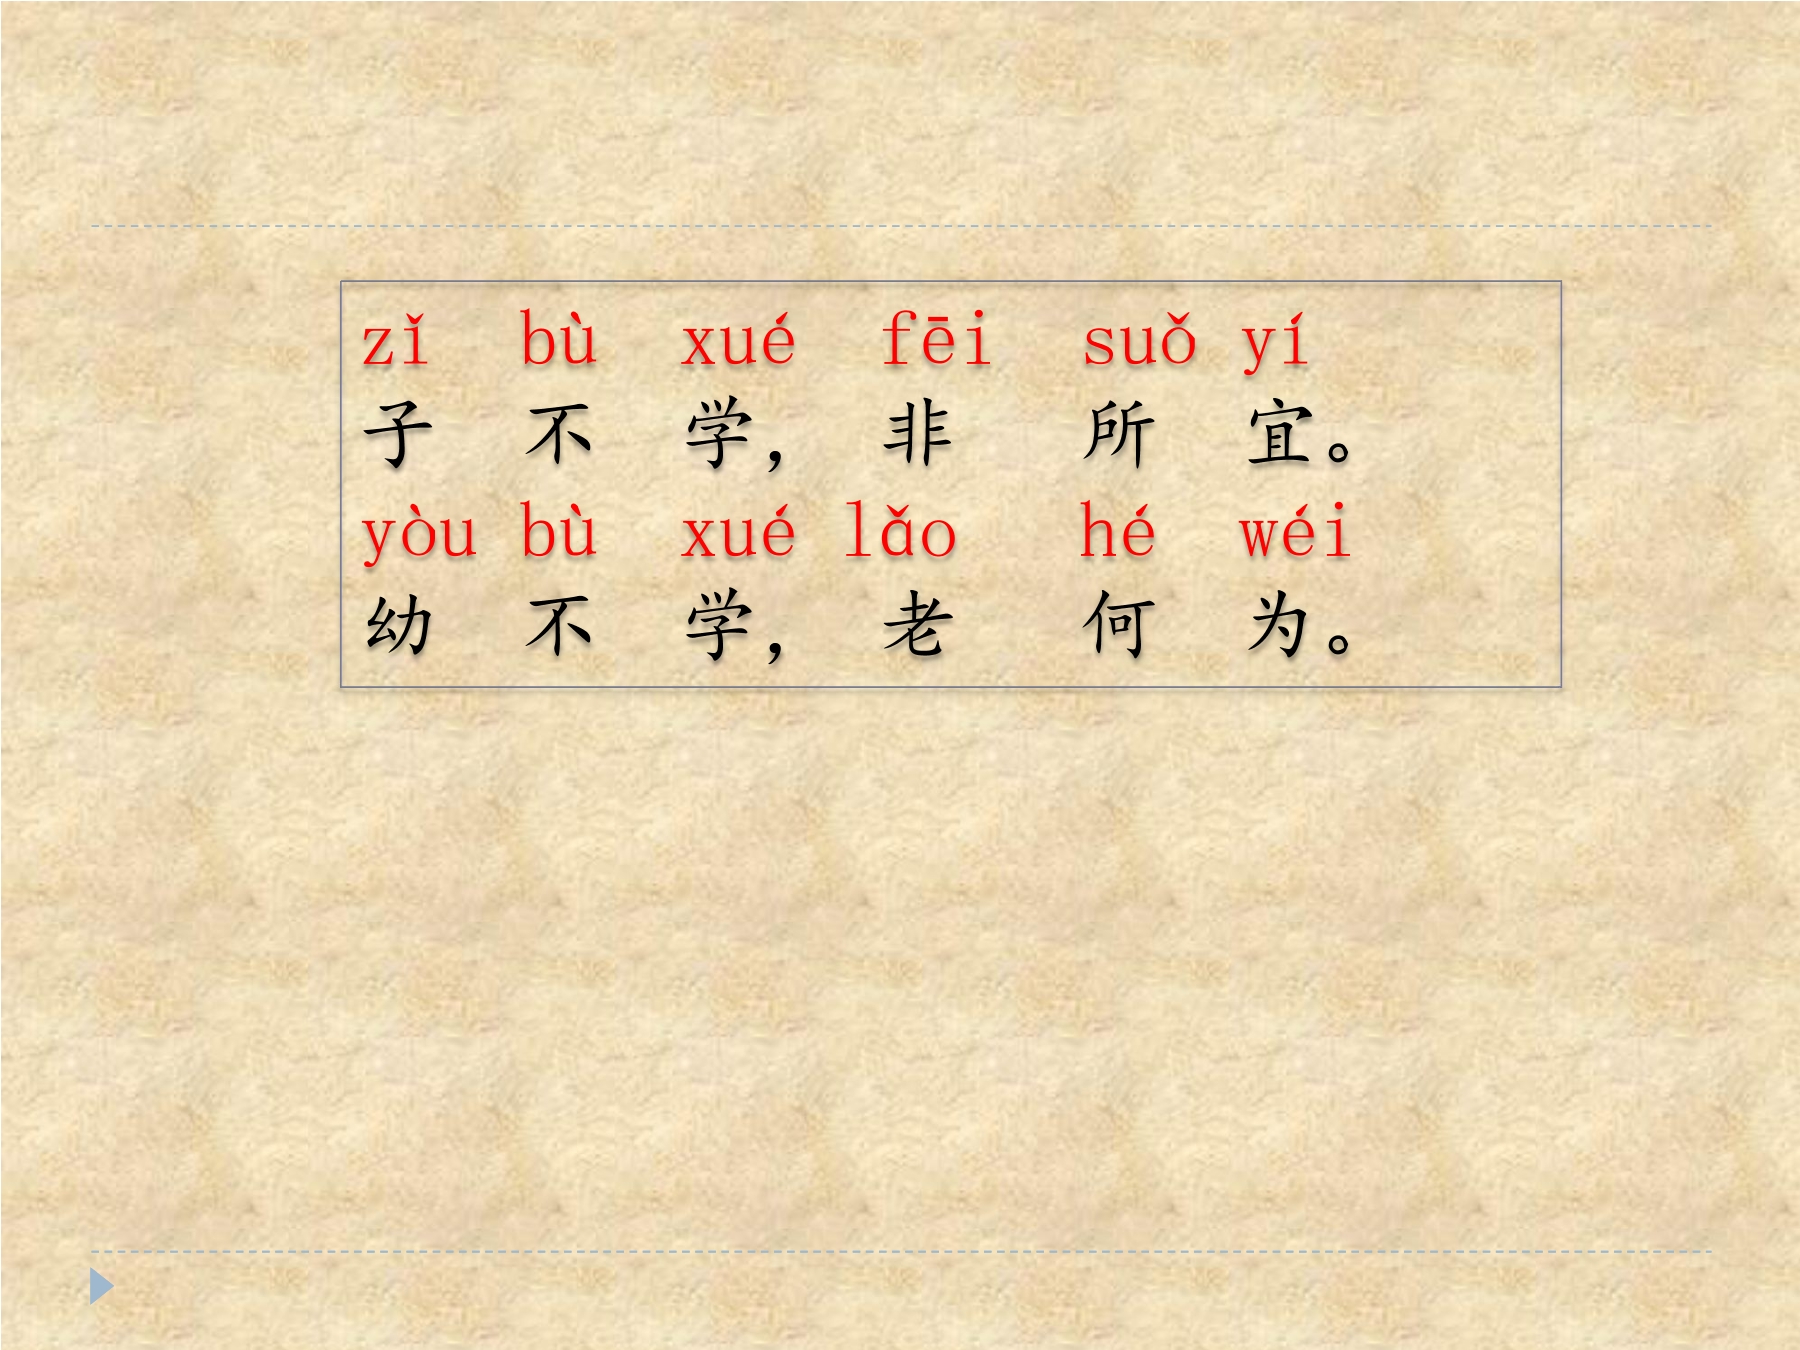 zǐ bù xué fēi suǒ yí
子 不 学， 非 所 宜。
yòu bù xué lǎo hé wéi
幼 不 学， 老 何 为。